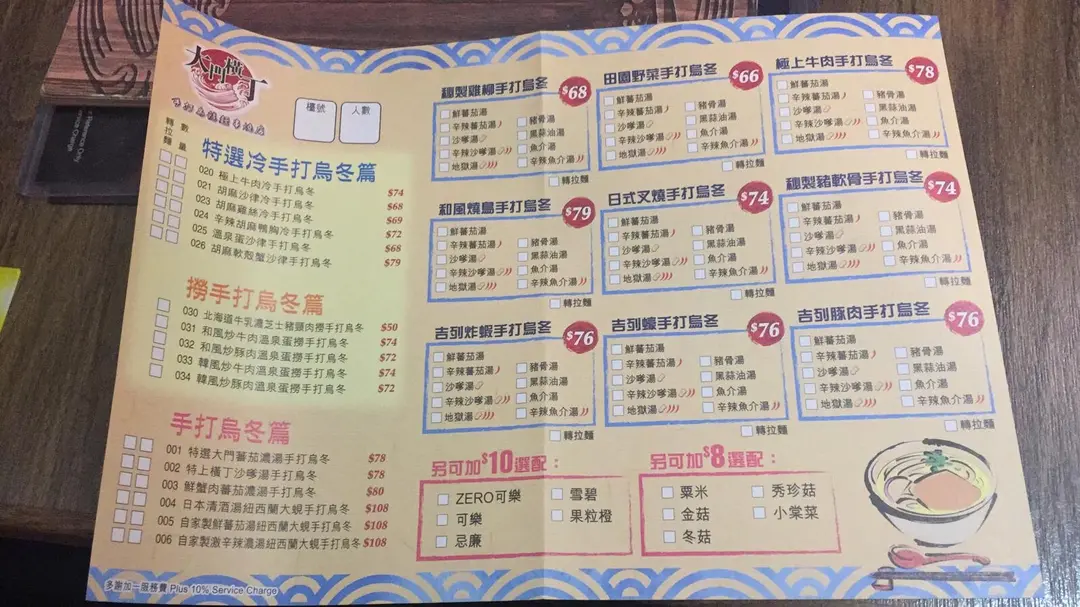 大門橫丁
檯號
人數
轉拉麵
數量
特選冷手打烏冬篇
020 極上牛肉冷手打烏冬 $74
021 胡麻沙律冷手打烏冬 $68
023 胡麻雞絲冷手打烏冬 $69
024 辛辣胡麻鴨胸冷手打烏冬 $72
025 溫泉蛋沙律手打烏冬 $68
026 胡麻軟殼蟹沙律手打烏冬 $79
撈手打烏冬篇
030 北海道牛乳濃芝士豬頸肉撈手打烏冬 $50
031 和風炒牛肉溫泉蛋撈手打烏冬 $74
032 和風炒豚肉溫泉蛋撈手打烏冬 $72
033 韓風炒牛肉溫泉蛋撈手打烏冬 $74
034 韓風炒豚肉溫泉蛋撈手打烏冬 $72
手打烏冬篇
001 特選大門蕃茄濃湯手打烏冬 $78
002 特上橫丁沙嗲湯手打烏冬 $78
003 鮮蟹肉蕃茄濃湯手打烏冬 $80
004 日本清酒湯紐西蘭大蜆手打烏冬 $108
005 自家製鮮蕃茄湯紐西蘭大蜆手打烏冬 $108
006 自家製激辛辣濃湯紐西蘭大蜆手打烏冬 $108
多謝加一服務費 Plus 10% Service Charge
秘製雞柳手打烏冬 $68
鮮蕃茄湯
辛辣蕃茄湯 豬骨湯
沙嗲湯 黑蒜油湯
辛辣沙嗲湯 魚介湯
地獄湯 辛辣魚介湯
轉拉麵
田園野菜手打烏冬 $66
鮮蕃茄湯
辛辣蕃茄湯 豬骨湯
沙嗲湯 黑蒜油湯
辛辣沙嗲湯 魚介湯
地獄湯 辛辣魚介湯
轉拉麵
極上牛肉手打烏冬 $78
鮮蕃茄湯
辛辣蕃茄湯 豬骨湯
沙嗲湯 黑蒜油湯
辛辣沙嗲湯 魚介湯
地獄湯 辛辣魚介湯
轉拉麵
和風燒鳥手打烏冬 $79
鮮蕃茄湯
辛辣蕃茄湯 豬骨湯
沙嗲湯 黑蒜油湯
辛辣沙嗲湯 魚介湯
地獄湯 辛辣魚介湯
轉拉麵
日式叉燒手打烏冬 $74
鮮蕃茄湯
辛辣蕃茄湯 豬骨湯
沙嗲湯 黑蒜油湯
辛辣沙嗲湯 魚介湯
地獄湯 辛辣魚介湯
轉拉麵
秘製豬軟骨手打烏冬 $74
鮮蕃茄湯
辛辣蕃茄湯 豬骨湯
沙嗲湯 黑蒜油湯
辛辣沙嗲湯 魚介湯
地獄湯 辛辣魚介湯
轉拉麵
吉列炸蝦手打烏冬 $76
鮮蕃茄湯
辛辣蕃茄湯 豬骨湯
沙嗲湯 黑蒜油湯
辛辣沙嗲湯 魚介湯
地獄湯 辛辣魚介湯
轉拉麵
吉列蠔手打烏冬 $76
鮮蕃茄湯
辛辣蕃茄湯 豬骨湯
沙嗲湯 黑蒜油湯
辛辣沙嗲湯 魚介湯
地獄湯 辛辣魚介湯
轉拉麵
吉列豚肉手打烏冬 $76
鮮蕃茄湯
辛辣蕃茄湯 豬骨湯
沙嗲湯 黑蒜油湯
辛辣沙嗲湯 魚介湯
地獄湯 辛辣魚介湯
轉拉麵
另可加$10選配：
ZERO可樂 雪碧
可樂 果粒橙
忌廉
另可加$8選配：
粟米 秀珍菇
金菇 小棠菜
冬菇